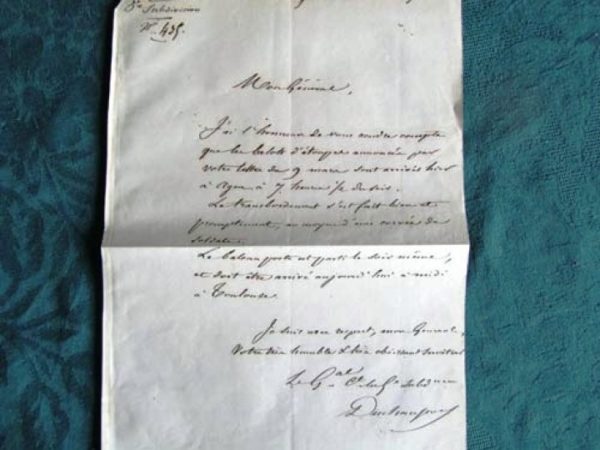 Subdivision
N° 435.
Mon Général,
J'ai l'honneur de vous rendre compte
que les ballots d'étoupes annoncés par
votre lettre du 9 mars sont arrivés hier
à à 7 heures ½ du soir.
Le transbordement s'est fait bien et
promptement, au moyen d'une corvée de
soldats.
Le bateau poste est parti le soir même,
et doit être arrivé aujourd'hui à midi
à Toulouse.
Je suis avec respect, mon Général,
Votre très humble & très obéissant serviteur
Le Gal Ct la Subdivision